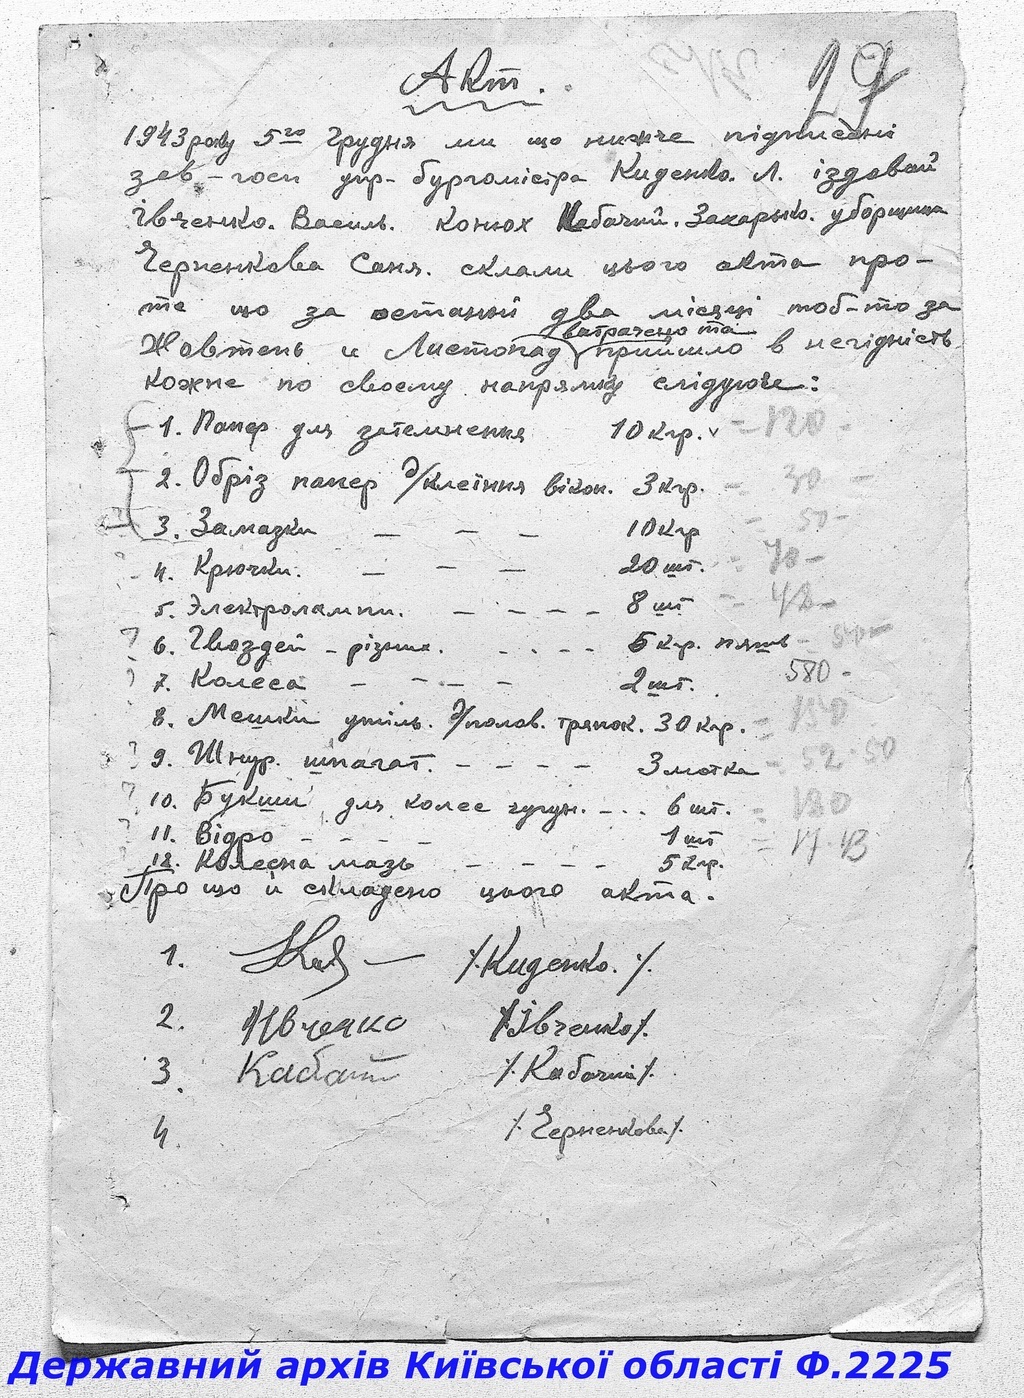 27
Акт.
1943 року 5го Грудня ми що нижче підписані
зав-госп упр- бургомістра Киденко. Л. їздовай
Івченко. Василь. конюх Кабачий. Захарько. уборщица
Черненкова Саня. склали цього акта про-
те що за останні два місяці тоб-то за
витрачено та
Жовтень и Листопад прийшло в негідність
кожне по своему напрямку слідуюче:
1. Папер для затемнення 10 кгр. = 120 -
2. Обріз папер д/клеіння вікон. 3 кгр. - 30 -
3. Замазки - - - 10 кгр = 50 -
4. Крючки. - - - 20 шт. = 70 -
5. Электролампи. - - - - 8 шт = 48 -
6. Гвоздей - різних. - - - - 5 кгр.
7. Колеса - - - - 2 шт. 580 -
8. Мешки утіль. д/полов. тряпок. 30 кгр. = 150
9. Шнур. шпагат. - - - - 3 мотка = 52-50
10. Букши для колес чугун. - - . 6 шт. = 180
11. Відро - - - - - 1 шт
12. Колесна мазь - - - - 5 кгр.
Про що й складено цього акта.
1. /.Киденко. /.
2. Івченко /Івченко/.
3. Кабачий /.Кабачий/.
4. /.Черненкова/.
Державний архів Київської області Ф.2225